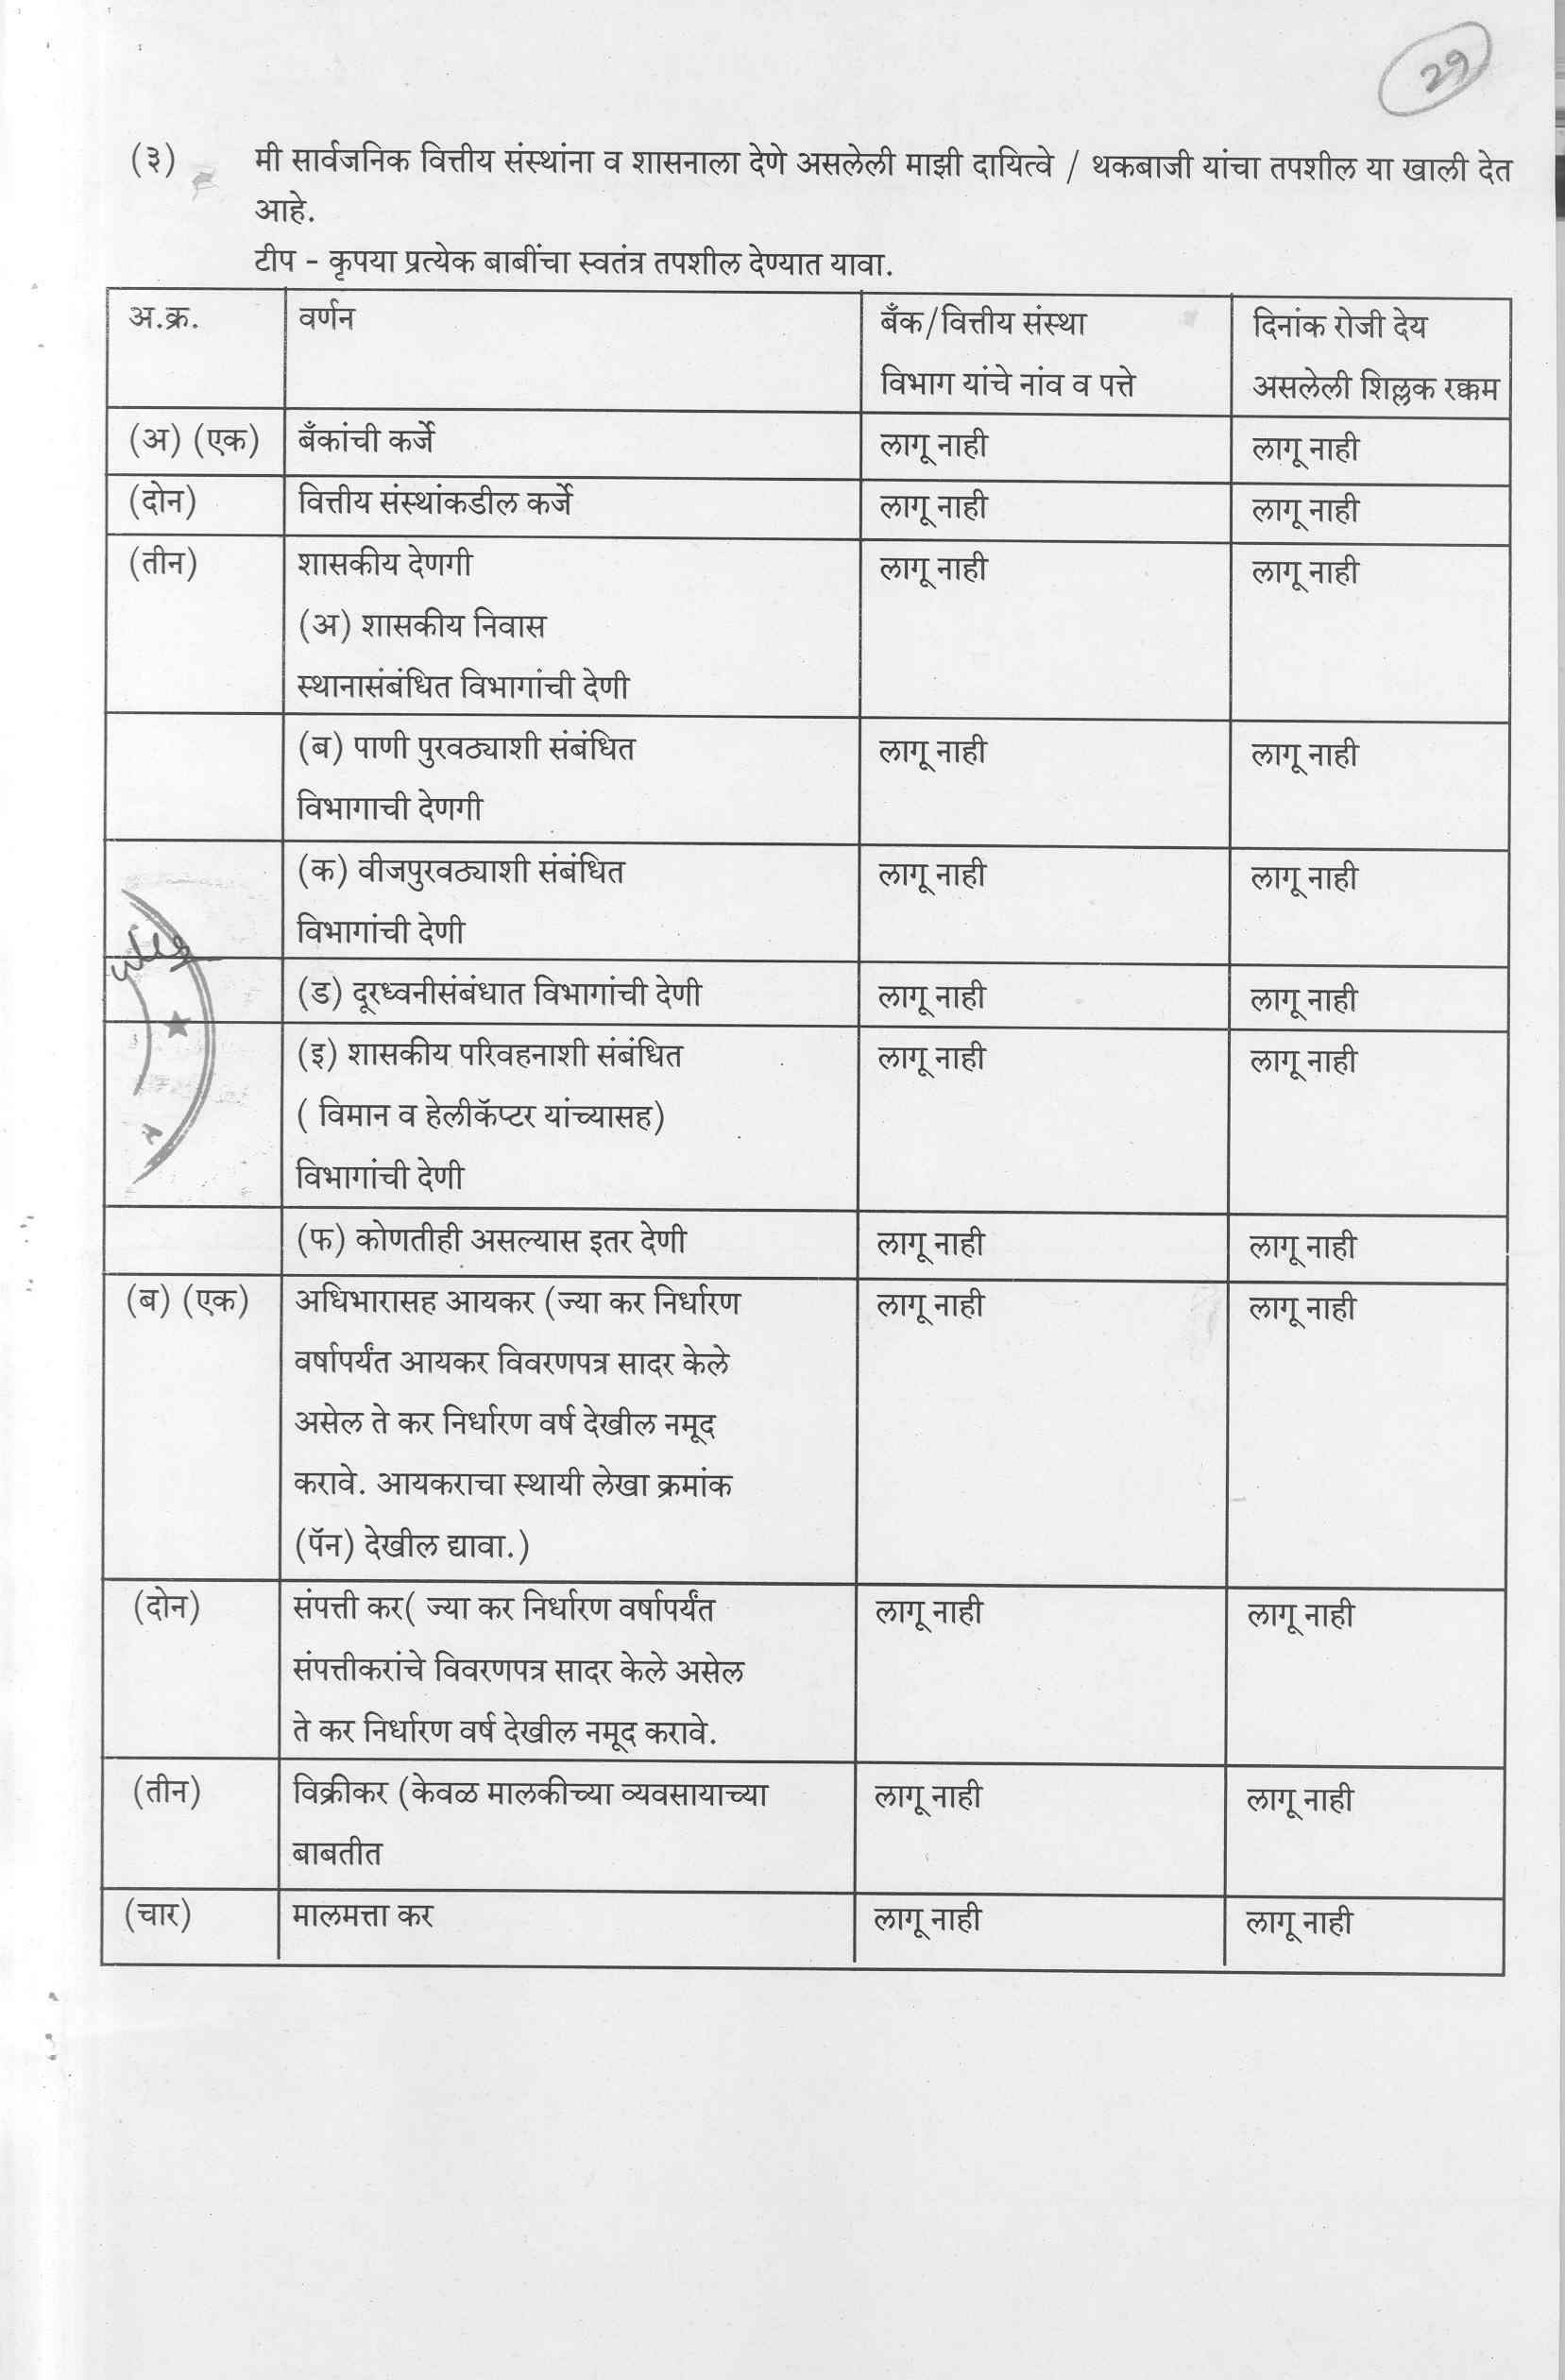 २७
(३) मी सार्वजनिक वित्तीय संस्थांना व शासनाला देणे असलेली माझी दायित्वे / थकबाजी यांचा तपशील या खाली देत
आहे.
टीप - कृपया प्रत्येक बाबींचा स्वतंत्र तपशील देण्यात यावा.
अ.क्र. वर्णन बँक/वित्तीय संस्था दिनांक रोजी देय
विभाग यांचे नांव व पत्ते असलेली शिल्लक रक्कम
(अ) (एक) बँकांची कर्जे लागू नाही लागू नाही
(दोन) वित्तीय संस्थांकडील कर्जे लागू नाही लागू नाही
(तीन) शासकीय देणगी लागू नाही लागू नाही
(अ) शासकीय निवास
स्थानासंबंधित विभागांची देणी
(ब) पाणी पुरवठ्याशी संबंधित लागू नाही लागू नाही
विभागाची देणगी
(क) वीजपुरवठ्याशी संबंधित लागू नाही लागू नाही
विभागांची देणी
(ड) दूरध्वनीसंबंधात विभागांची देणी लागू नाही लागू नाही
(इ) शासकीय परिवहनाशी संबंधित लागू नाही लागू नाही
( विमान व हेलीकॅप्टर यांच्यासह)
विभागांची देणी
(फ) कोणतीही असल्यास इतर देणी लागू नाही लागू नाही
(ब) (एक) अधिभारासह आयकर (ज्या कर निर्धारण लागू नाही लागू नाही
वर्षापर्यंत आयकर विवरणपत्र सादर केले
असेल ते कर निर्धारण वर्ष देखील नमूद
करावे. आयकराचा स्थायी लेखा क्रमांक
(पॅन) देखील द्यावा.)
(दोन) संपत्ती कर( ज्या कर निर्धारण वर्षापर्यंत लागू नाही लागू नाही
संपत्तीकरांचे विवरणपत्र सादर केले असेल
ते कर निर्धारण वर्ष देखील नमूद करावे.
(तीन) विक्रीकर (केवळ मालकीच्या व्यवसायाच्या लागू नाही लागू नाही
बाबतीत
(चार) मालमत्ता कर लागू नाही लागू नाही